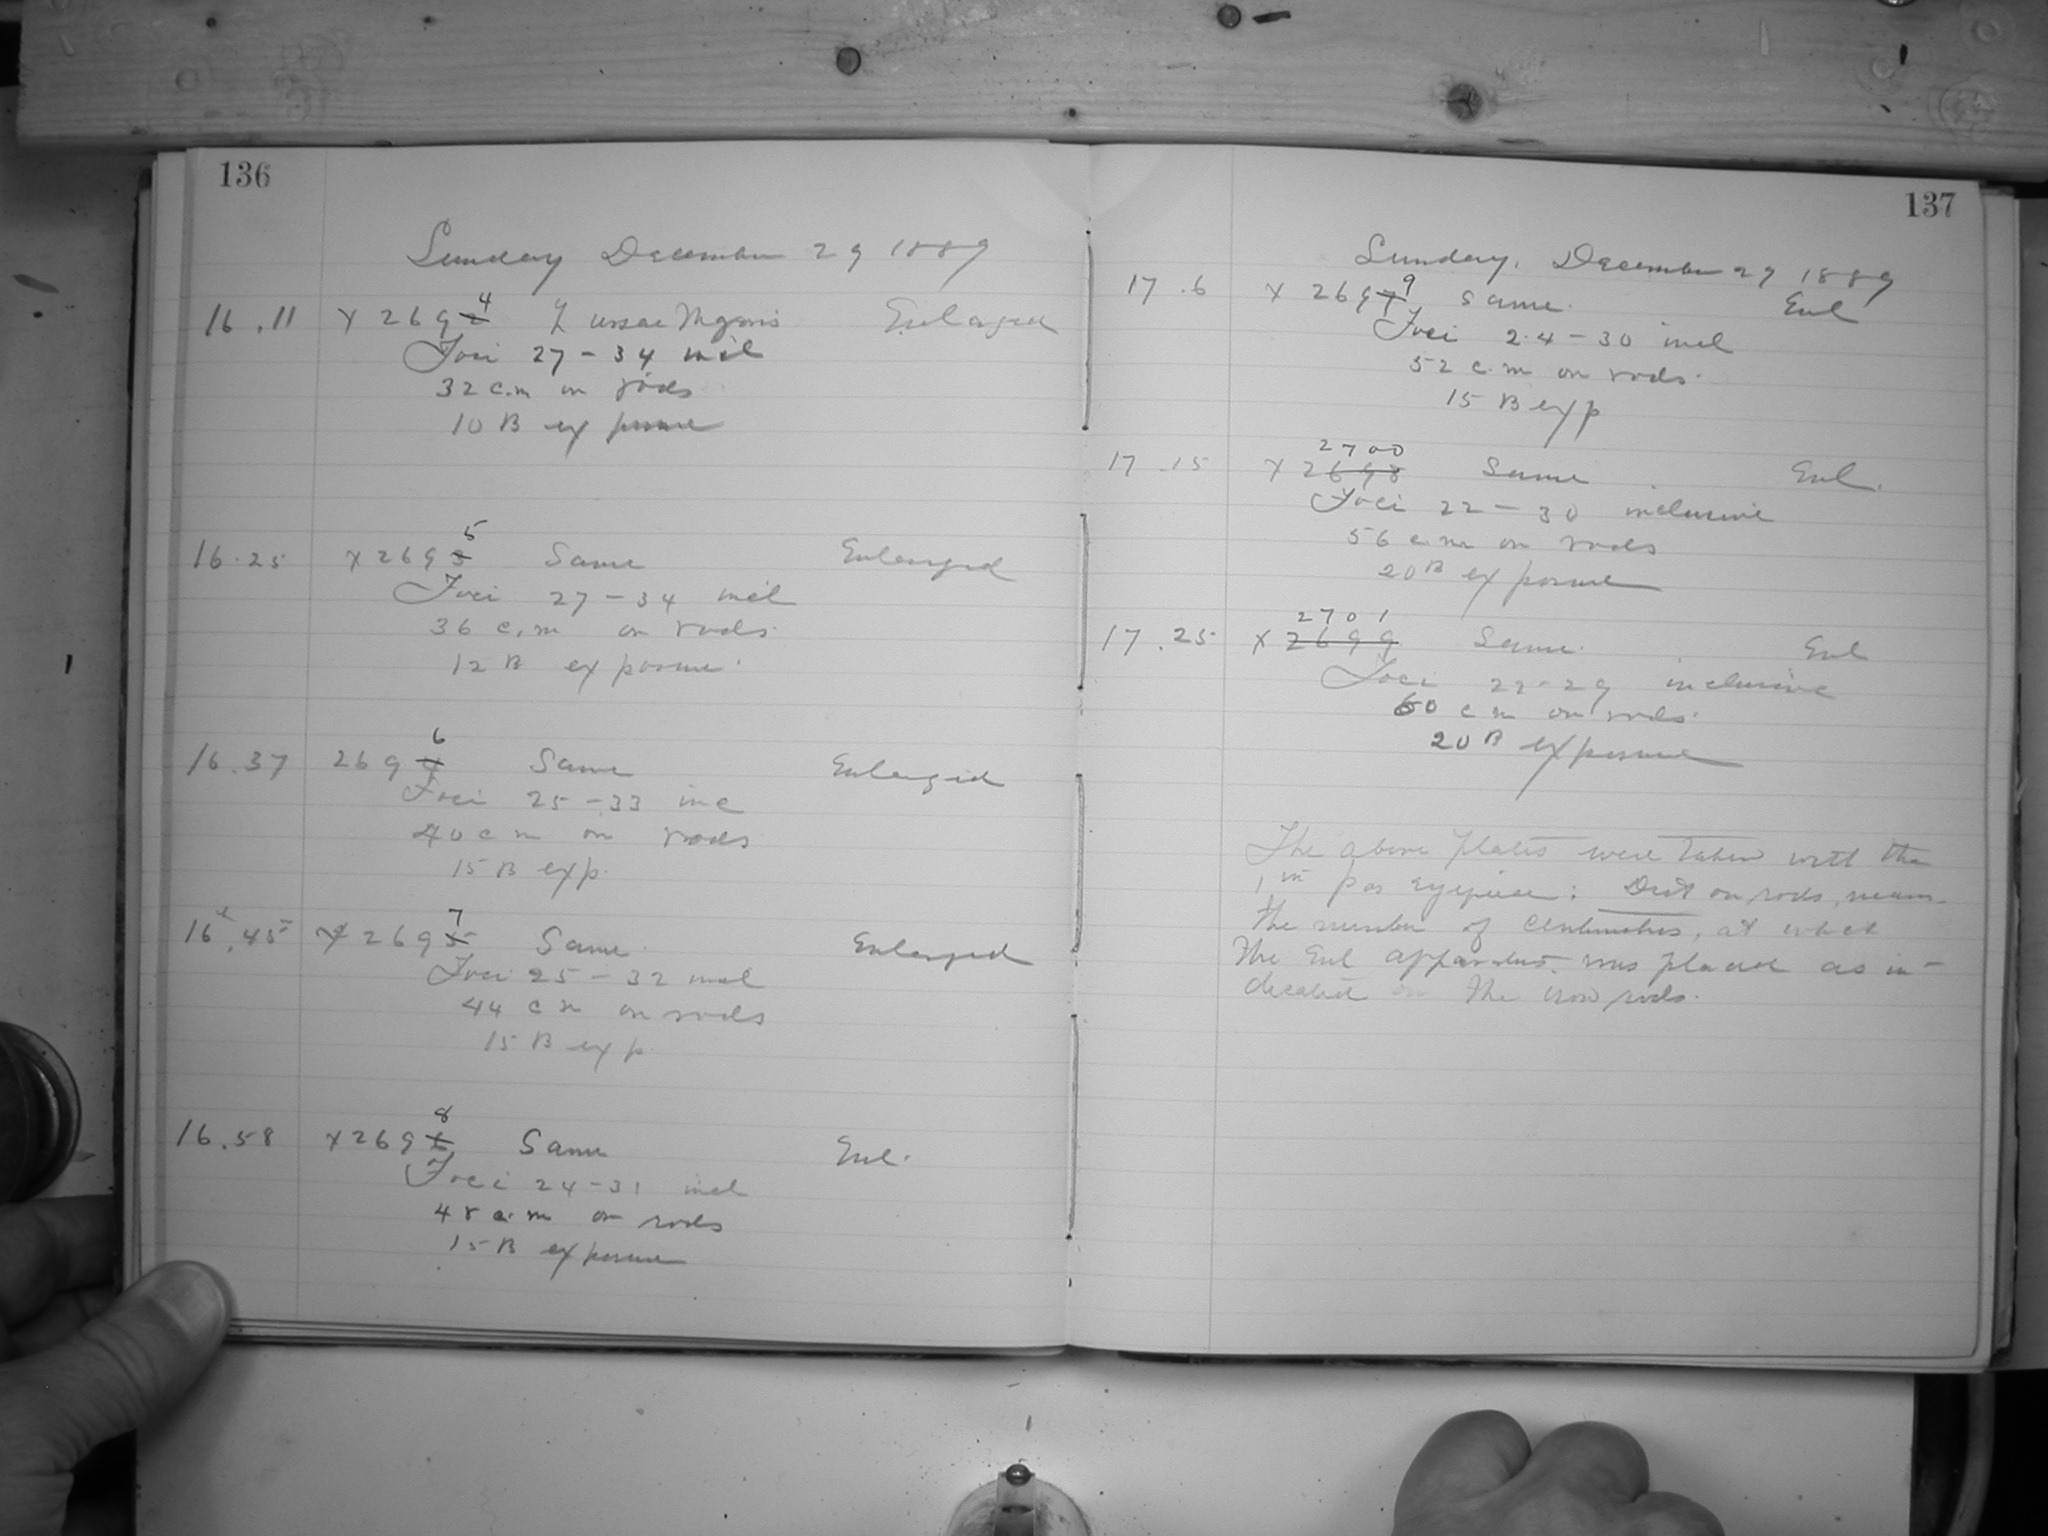 136
Sunday December 29 1889
16.11 X 2692 4 ζ Ursae Majoris Enlarged
Foci 27 - 34 incl
32 c.m on rods
10 B exposure
16.25 X 2693 5 Same Enlarged
Foci 27 - 34 incl
36 c.m on rods
12 B exposure.
16.37 2694 6 Same Enlarged
Foci 25 - 33 inc
40 c m on rods
15 B exp.
16.45 X 2695 7 Same. Enlarged
Foci 25 - 32 incl
44 c m on rods
15 B exp
16.58 X 2696 8 Same Enl.
Foci 24 - 31 incl
48 c.m on rods
15 B exposure
137
Sunday, December 29 1889
17.6 X 2697 9 Same. Enl
Foci 24 - 30 incl
52 c.m on rods.
15 B exp
2700
17.15 X 2698 Same Enl.
Foci 22 - 30 inclusive
56 c.m on rods
20 B exposure
2701
17.25 X 2699 Same. Enl
Foci 22 - 29 inclusive
60 c m on rods.
20 B exposure
The above plates were taken with the
1 in pos eyepiece: Dist on rods, means
the number of centimetres, at which
the Enl apparatus. was placed as in-
dicated on the iron rods.